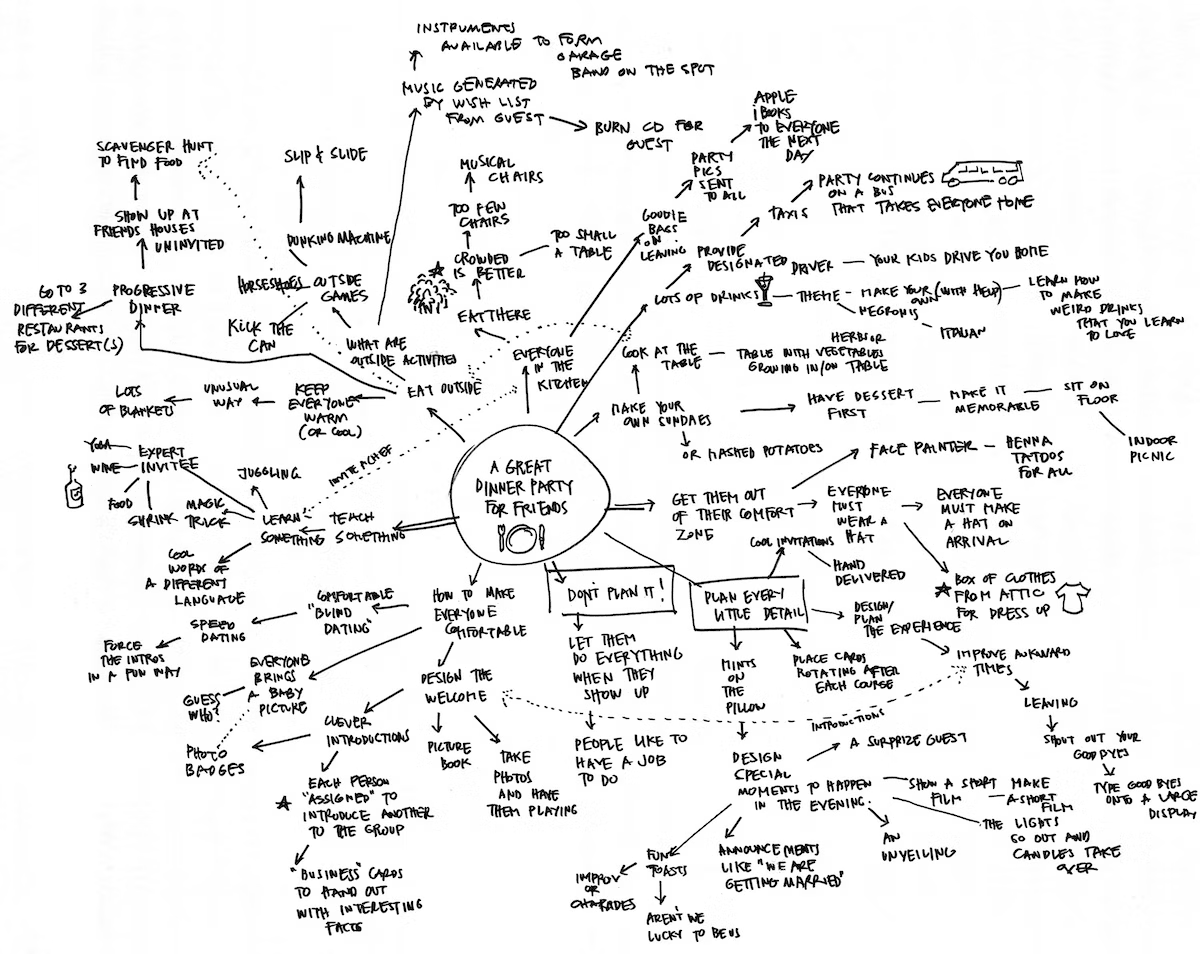 INSTRUMENTS
AVAILABLE TO FORM
GARAGE
BAND ON THE SPOT
MUSIC GENERATED
BY WISH LIST
FROM GUEST
BURN CD FOR
GUEST
SCAVENGER HUNT
TO FIND FOOD
SLIP & SLIDE
SHOW UP AT
FRIENDS HOUSES
UNINVITED
DUNKING MACHINE
HORSESHOES
OUTSIDE
GAMES
KICK THE
CAN
WHAT ARE
OUTSIDE ACTIVITIES
GO TO 3
DIFFERENT
RESTAURANTS
FOR DESSERT(S)
PROGRESSIVE
DINNER
EAT OUTSIDE
KEEP
EVERYONE
WARM
(OR COOL)
UNUSUAL
WAY
LOTS
OF BLANKETS
MUSICAL
CHAIRS
TOO FEW
CHAIRS
CROWDED
IS BETTER
TOO SMALL
A TABLE
EAT THERE
EVERYONE
IN THE
KITCHEN
APPLE
iBOOKS
TO EVERYONE
THE NEXT
DAY
PARTY
PICS
SENT
TO ALL
GOODIE
BAGS
ON
LEAVING
PARTY CONTINUES
ON A BUS
THAT TAKES EVERYONE HOME
TAXIS
PROVIDE
DESIGNATED
DRIVER
YOUR KIDS DRIVE YOU HOME
LOTS OF DRINKS
THEME
MAKE YOUR (WITH HELP)
OWN
NEGRONIS
ITALIAN
LEARN HOW
TO MAKE
WEIRD DRINKS
THAT YOU LEARN
TO LOVE
LOOK AT THE
TABLE
HERBS OR
TABLE WITH VEGETABLES
GROWING IN/ON TABLE
MAKE YOUR
OWN SUNDAES
OR MASHED POTATOES
HAVE DESSERT
FIRST
MAKE IT
MEMORABLE
SIT ON
FLOOR
INDOOR
PICNIC
A GREAT
DINNER PARTY
FOR FRIENDS
INVITE A CHEF
YOGA
WINE
EXPERT
INVITEE
FOOD
SHRINK
JUGGLING
MAGIC
TRICK
LEARN
SOMETHING
TEACH
SOMETHING
COOL
WORDS OF
A DIFFERENT
LANGUAGE
GET THEM OUT
OF THEIR COMFORT
ZONE
FACE PAINTER
HENNA
TATOOS
FOR ALL
EVERONE
MUST
WEAR A
HAT
EVERYONE
MUST MAKE
A HAT ON
ARRIVAL
BOX OF CLOTHES
FROM ATTIC
FOR DRESS UP
COOL INVITATIONS
HAND
DELIVERED
DON'T PLAN IT!
PLAN EVERY
LITTLE DETAIL
DESIGN/
PLAN
THE EXPERIENCE
IMPROVE AWKWARD
TIMES
LEAVING
SHOUT OUT YOUR
GOODBYES
TYPE GOOD BYES
ONTO A LARGE
DISPLAY
PLACE CARDS
ROTATING AFTER
EACH COURSE
MINTS
ON
THE
PILLOW
LET THEM
DO EVERYTHING
WHEN THEY
SHOW UP
PEOPLE LIKE TO
HAVE A JOB
TO DO
INTRODUCTIONS
HOW TO MAKE
EVERYONE
COMFORTABLE
COMFORTABLE
"BLIND
DATING"
SPEED
DATING
FORCE
THE INTROS
IN A FUN WAY
EVERYONE
BRINGS
A BABY
PICTURE
GUESS
WHO?
PHOTO
BADGES
DESIGN THE
WELCOME
CLEVER
INTRODUCTIONS
PICTURE
BOOK
TAKE
PHOTOS
AND HAVE
THEM PLAYING
EACH PERSON
"ASSIGNED" TO
INTRODUCE ANOTHER
TO THE GROUP
"BUSINESS" CARDS
TO HAND OUT
WITH INTERESTING
FACTS
DESIGN
SPECIAL
MOMENTS TO HAPPEN
IN THE EVENING.
A SURPRIZE GUEST
SHOW A SHORT
FILM
MAKE
A SHORT
FILM
THE LIGHTS
GO OUT AND
CANDLES TAKE
OVER
AN
UNVEILING
ANNOUNCEMENTS
LIKE "WE ARE
GETTING MARRIED"
FUN
TOASTS
IMPROV
OR
CHARADES
AREN'T WE
LUCKY TO BE US